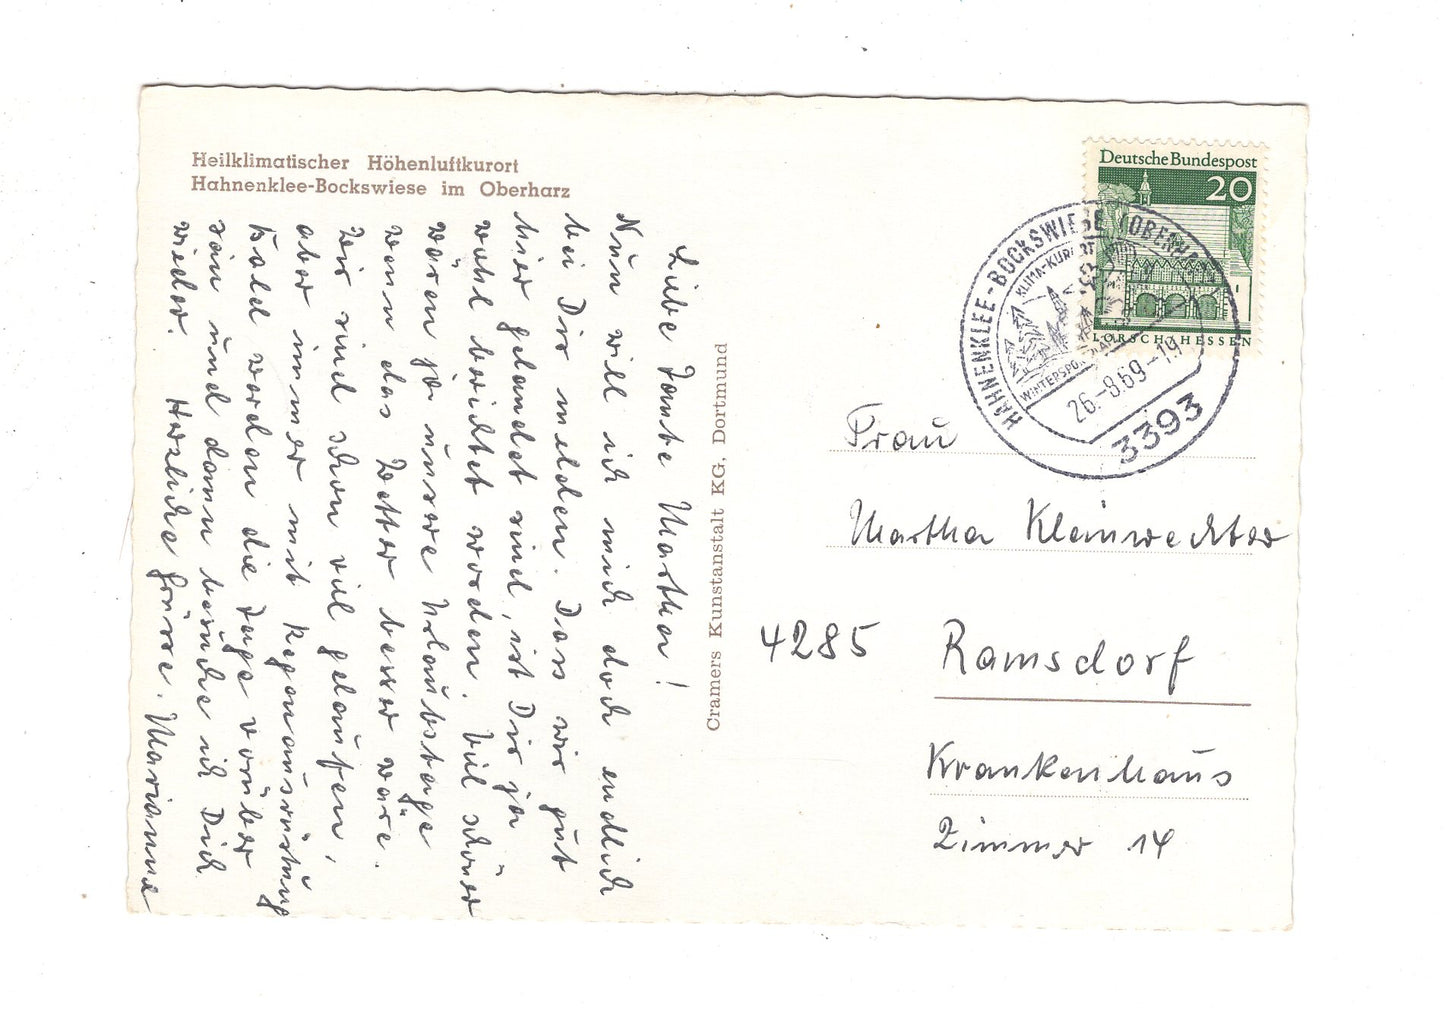 Heilklimatischer Höhenluftkurort
Hahnenklee-Bockswiese im Oberharz
Liebe Tante Martha!
Nun will ich mich doch endlich
bei Dir melden. Dass wir gut
hier gelandet sind, ist Dir ja
wohl berichtet worden. Viel schöner
wären ja unsere Urlaubstage
wenn das Wetter besser wäre.
Wir sind schon viel gelaufen,
aber immer mit Regenausrüstung
Bald werden die Tage vorüber
sein und dann besuche ich Dich
wieder. Herzliche Grüsse. Marianne
Cramers Kunstanstalt KG, Dortmund
Deutsche Bundespost
20
LORSCH/HESSEN
HAHNENKLEE-BOCKSWIESE (OBERHARZ
KLIMA-KURORT
WINTERSPORTPLATZ
26.-8.69-19
3393
Frau
Martha Kleinwechter
4285 Ramsdorf
Krankenhaus
Zimmer 14